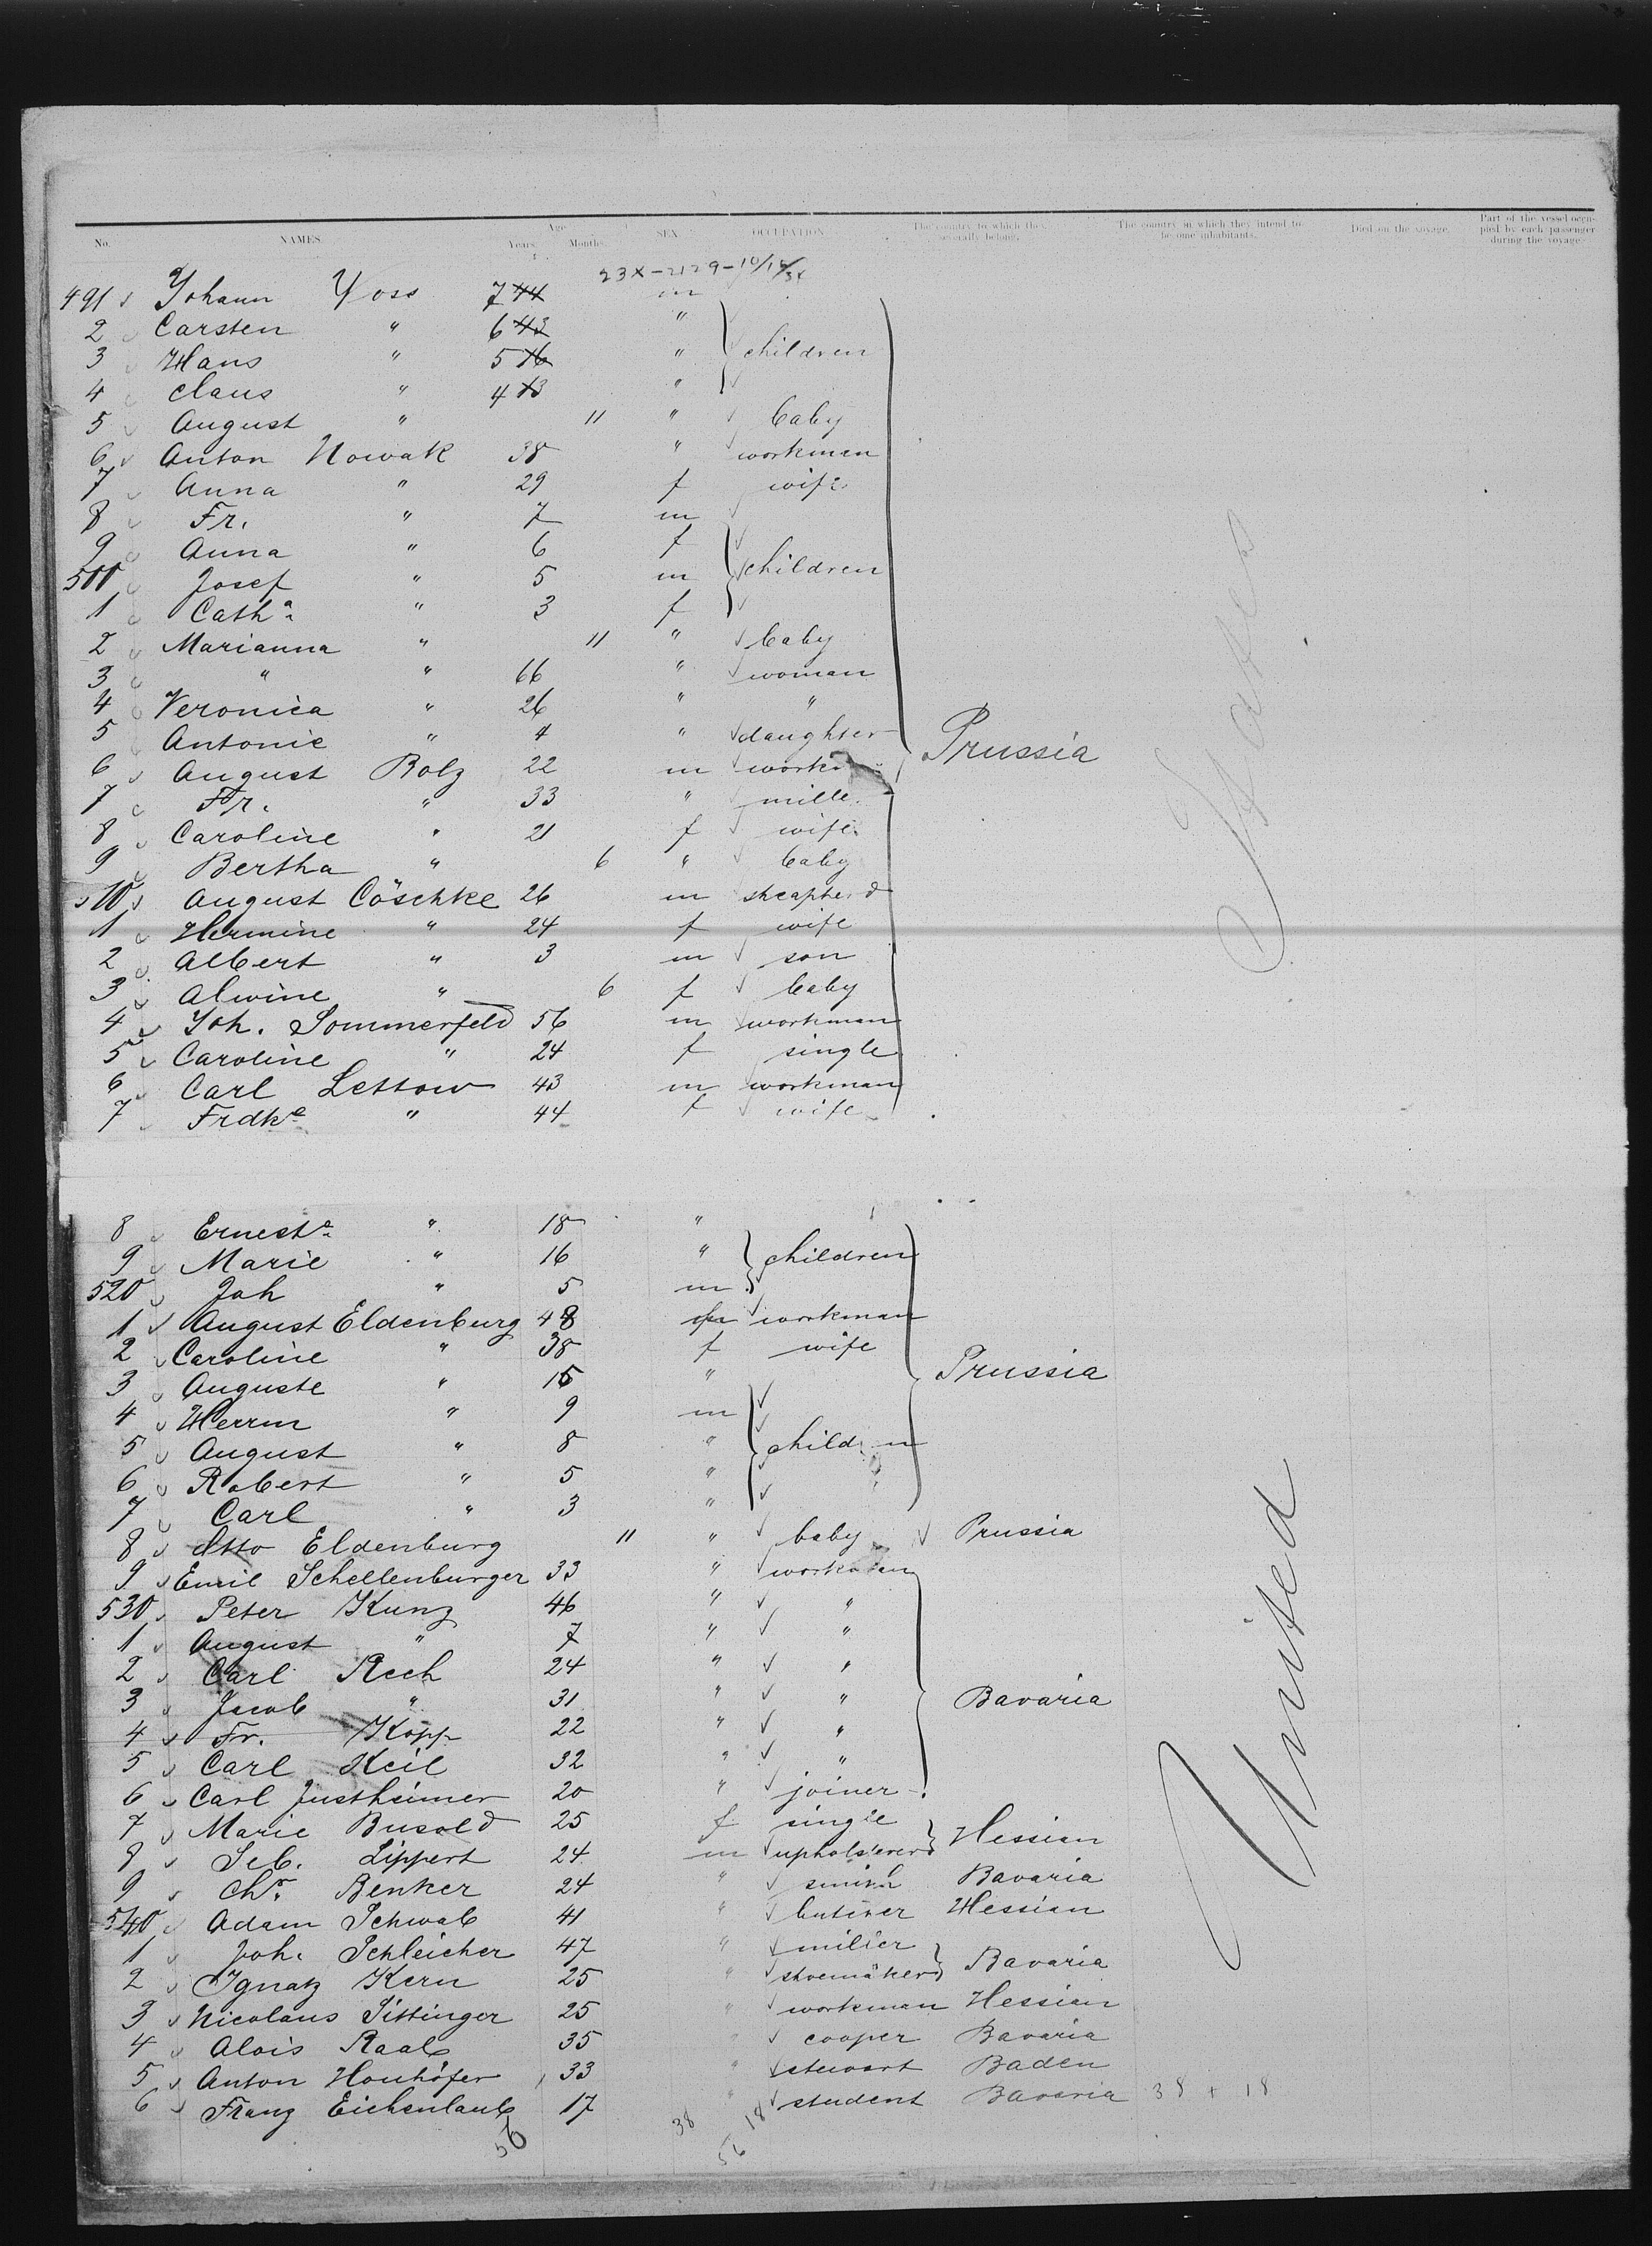 No. NAMES. Age Years. Months. SEX. OCCUPATION. The country to which they severally belong. The country in which they intend to become inhabitants. Died on the voyage. Part of the vessel occupied by each passenger during the voyage.
23X-2129-10/15/34
491 Johann Voss 7 44 m
2 Carsten " 6 43 "
3 Hans " 5 16 " children
4 Claus " 4 13 "
5 August " 11 " baby
6 Anton Nowak 38 " workman
7 Anna " 29 f wife
8 Fr. " 7 m
9 Anna " 6 f
500 Josef " 5 m children
1 Cath.a " 3 f
2 Marianna " 11 " baby
3 " " 66 " woman
4 Veronica " 26 " "
5 Antonie " 4 " daughter Prussia
6 August Bolz 22 m
7 Fr. " 33 " mille
8 Caroline " 21 f wife
9 Bertha " 6 " baby
510 August Cöschke 26 m sheapherd
1 Hermine " 24 f wife
2 Albert " 3 m son
3 Alwine " 6 f baby
4 Joh. Sommerfeld 56 m workman
5 Caroline " 24 f single
6 Carl Lettow 43 m workman
7 Frdke " 44 f wife
States
8 Erneste " 18 "
9 Marie " 16 " children
520 Joh " 5 m
1 August Eldenburg 48 m workman
2 Caroline " 38 f wife
3 Auguste " 15 " Prussia
4 Herrm " 9 m
5 August " 8 " children
6 Robert " 5 "
7 Carl " 3 "
8 Otto Eldenburg 11 " baby Prussia
9 Emil Schellenburger 33 " workman
530 Peter Kunz 46 " "
1 August " 7 " "
2 Carl Rech 24 " "
3 Jacob " 31 " " Bavaria
4 Fr. Kopp 22 " "
5 Carl Keil 32 " "
6 Carl Justheimer 20 " joiner
7 Marie Busold 25 f single
8 Seb. Lippert 24 m upholsterer Hessian
9 Chr. Benker 24 " smith Bavaria
540 Adam Schwab 41 " Hessian
1 Joh. Schleicher 47 " miller
2 Ignatz Kern 25 " shoemaker Bavaria
3 Nicolaus Sittinger 25 " workman Hessian
4 Alois Raab 35 " cooper Bavaria
5 Anton Honhöfer 33 " stewart Baden
6 Franz Eichenlaub 17 " student Bavaria 38 + 18
United
56 38 18
56